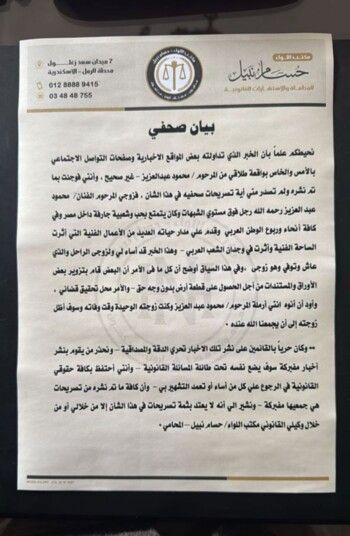 مكتب اللواء
حسام نبيل
للمحاماة والاستشارات القانونية
7 ميدان سعد زغلـــول
محطة الرمل - الاسكندرية
012 8888 9415
03 48 48 755
بيان صحفي
نحيطكم علماً بأن الخبر الذي تداولته بعض المواقع الاخبارية وصفحات التواصل الاجتماعي
بالأمس والخاص بواقعة طلاقي من المرحوم / محمود عبدالعزيز - غير صحيح ، وأنني فوجئت بما
تم نشره ولم تصدر مني أية تصريحات صحفيه في هذا الشأن ، فزوجي المرحوم الفنان/ محمود
عبد العزيز رحمه الله رجل فوق مستوي الشبهات وكان يتمتع بحب وشعبية جارفة داخل مصر وفي
كافة أنحاء وربوع الوطن العربي وقدم علي مدار حياته العديد من الأعمال الفنية التي أثرت
الساحة الفنية وأثرت في وجدان الشعب العربي - وهذا الخبر قد أساء لي ولزوجي الراحل والذي
عاش وتوفي وهو زوجي ، وفي هذا السياق أوضح أن كل ما في الأمر أن البعض قام بتزوير بعض
الأوراق والمستندات من أجل الحصول علي قطعة أرض بدون وجه حق - والأمر محل تحقيق قضائي ،
وأود أن أنوه أنني أرملة المرحوم / محمود عبد العزيز وكنت زوجته الوحيدة وقت وفاته وسوف أظل
زوجته إلي أن يجمعنا الله عنده •
•• وكان حرياً بالقائمين علي نشر تلك الاخبار تحري الدقة والمصداقية - ونحذر من يقوم بنشر
أخبار مفبركة سوف يضع نفسه تحت طائلة المسائلة القانونية - وأنني أحتفظ بكافة حقوقي
القانونية في الرجوع علي كل من أساء أو تعمد التشهير بي - وأن كافة ما تم نشره من تصريحات
هي جميعها مفبركة - ونشير الي أنه لا يعتد بثمة تصريحات في هذا الشأن إلا من خلالي أو من
خلال وكيلي القانوني مكتب اللواء/ حسام نبيل - المحامي •